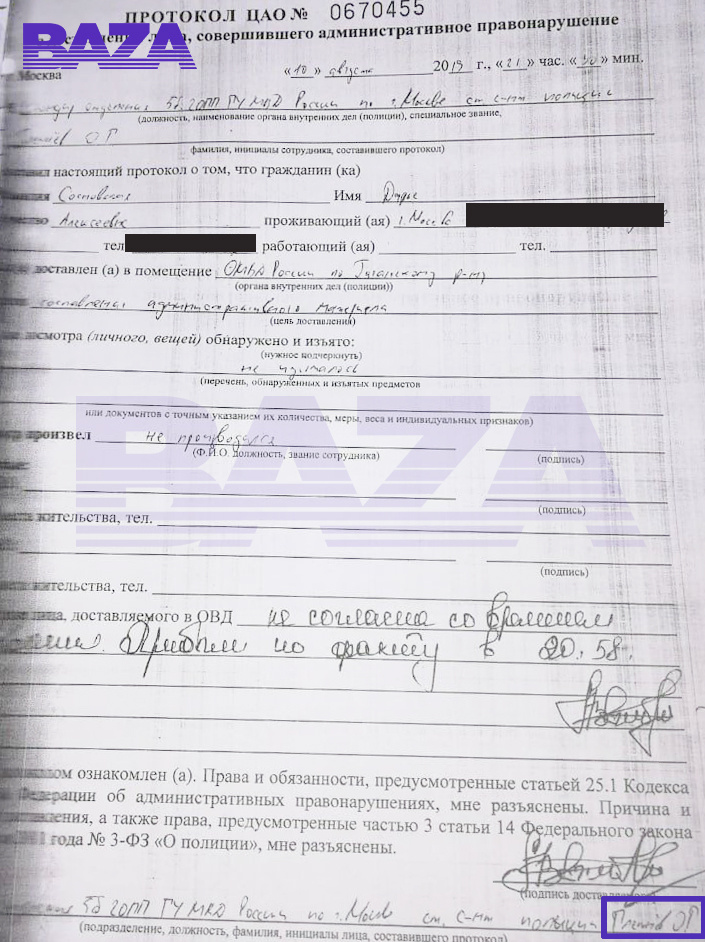 ПРОТОКОЛ ЦАО № 0670455
BAZA
, совершившего административное правонарушение
Москва «10» августа 2019 г., «21» час. «30» мин.
5б 2ОПП ГУ МВД России по г. Москве ст. с-нт полиции
(должность, наименование органа внутренних дел (полиции), специальное звание,
О Г
фамилия, инициалы сотрудника, составившего протокол)
настоящий протокол о том, что гражданин (ка)
Сосновская Имя Дарья
Алексеевна проживающий (ая) г. Москва
тел работающий (ая) тел.
доставлен (а) в помещение ОМВД России по Гагаринскому р-ну
(органа внутренних дел (полиции))
составления административного материала
(цель доставления)
осмотра (личного, вещей) обнаружено и изъято:
(нужное подчеркнуть)
не изымалось
(перечень, обнаруженных и изъятых предметов
BAZA
или документов с точным указанием их количества, меры, веса и индивидуальных признаков)
произвел не производился
(Ф.И.О. должность, звание сотрудника) (подпись)
(подпись)
жительства, тел.
(подпись)
жительства, тел.
лица, доставляемого в ОВД не согласна со временем
Прибыли по факту в 20.58.
ознакомлен (а). Права и обязанности, предусмотренные статьей 25.1 Кодекса
Федерации об административных правонарушениях, мне разъяснены. Причина и
а также права, предусмотренные частью 3 статьи 14 Федерального закона
года № 3-ФЗ «О полиции», мне разъяснены.
(подпись
5б 2ОПП ГУ МВД России по г. Москве ст. с-нт полиции О Г
(подразделение, должность, фамилия, инициалы лица, составившего протокол)